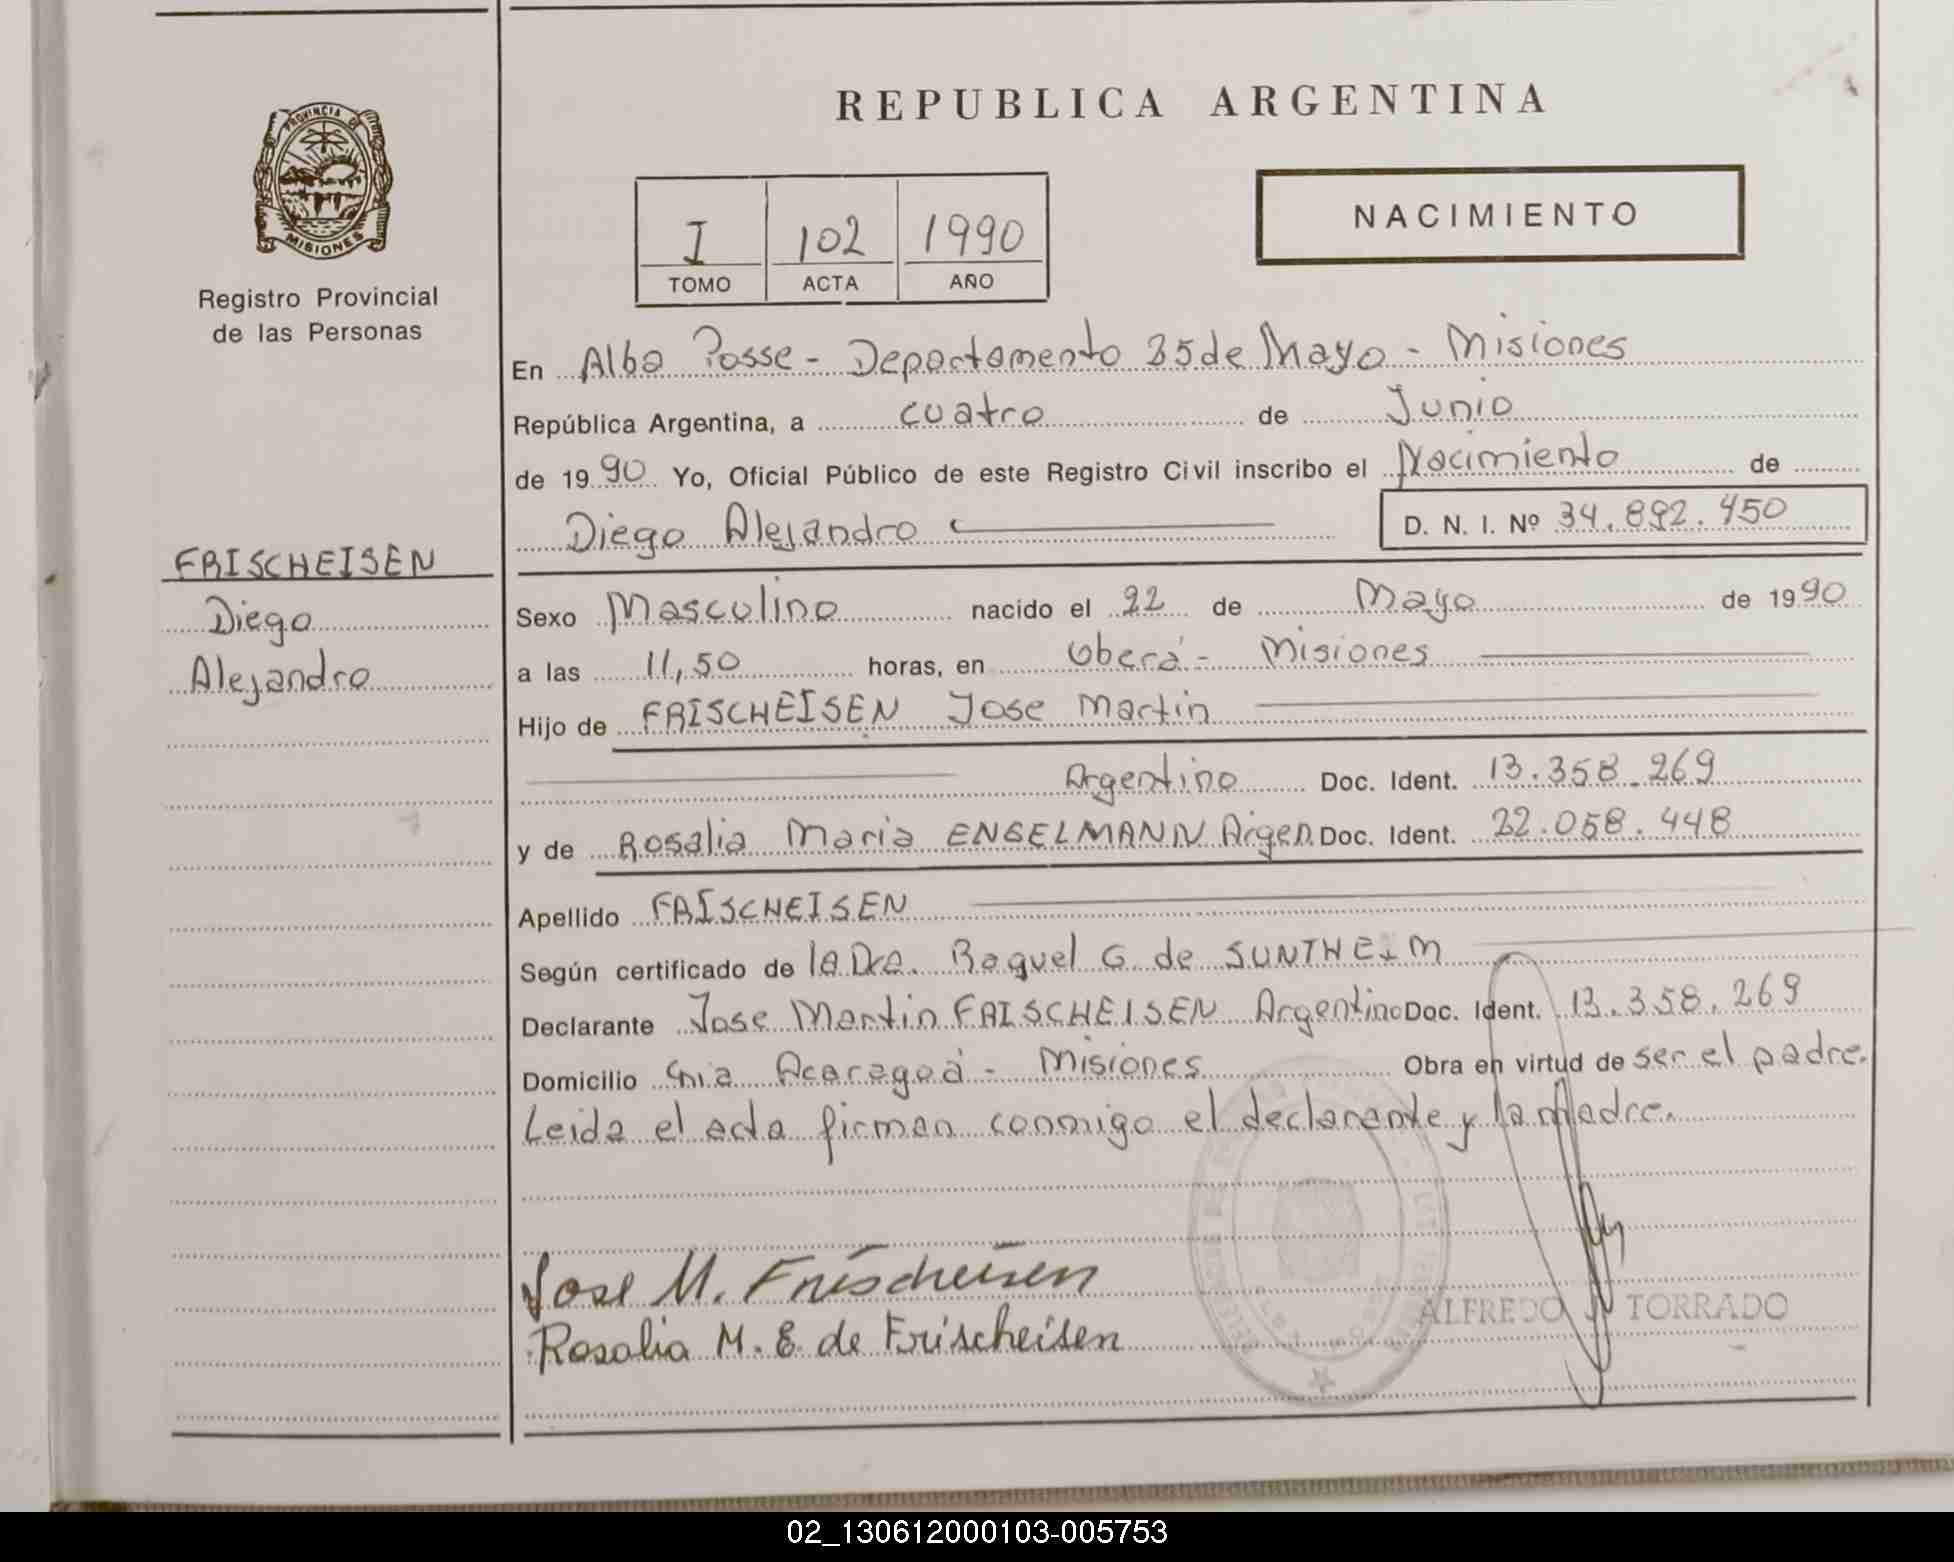 REPUBLICA ARGENTINA
PROVINCIA DE
MISIONES
Registro Provincial
de las Personas
I 102 1990
TOMO ACTA AÑO
NACIMIENTO
En Alba Posse - Departamento 25 de Mayo - Misiones
República Argentina, a cuatro de Junio
de 1990 Yo, Oficial Público de este Registro Civil inscribo el Nacimiento de
Diego Alejandro D. N. I. Nº 34.892.450
FRISCHEISEN
Diego
Alejandro
Sexo Masculino nacido el 22 de Mayo de 1990
a las 11,50 horas, en Oberá - Misiones
Hijo de FRISCHEISEN Jose Martin
Argentino Doc. Ident. 13.358.269
y de Rosalia Maria ENGELMANN Argen. Doc. Ident. 22.058.448
Apellido FRISCHEISEN
Según certificado de la Dra. Raquel G. de SUNTHEIM
Declarante Jose Martin FRISCHEISEN Argentino Doc. Ident. 13.358.269
Domicilio Cnia Acaragoá - Misiones Obra en virtud de ser el padre.
Leida el acta firman conmigo el declarante y la madre.
Jose M. Frischeisen
Rosalia M. E. de Frischeisen
ALFREDO J. TORRADO
02_130612000103-005753